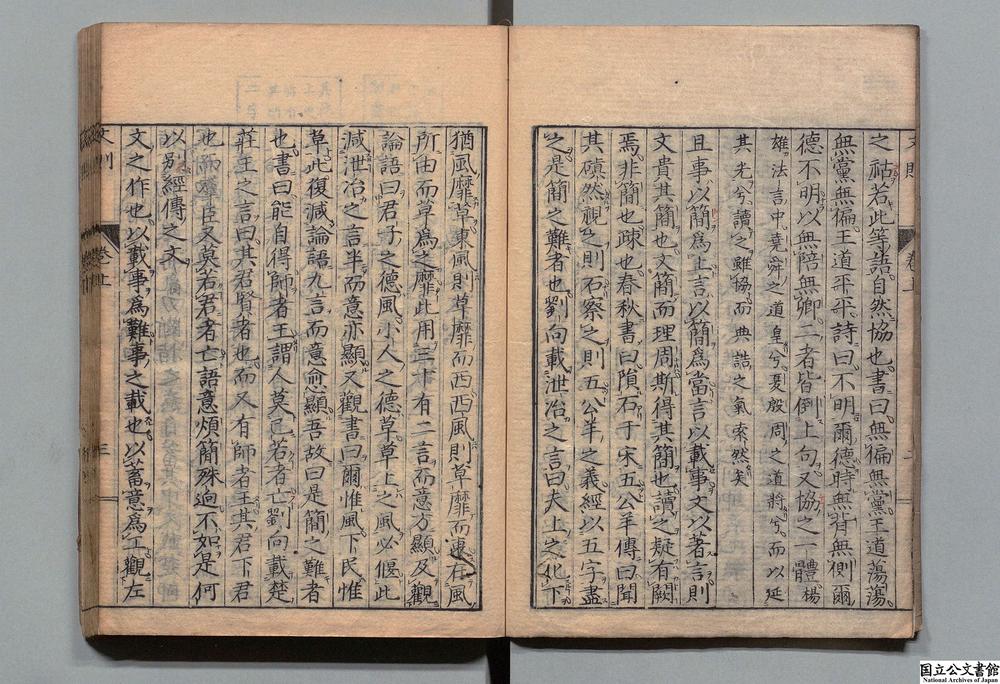 之祜若此等語自然協也書曰無偏無黨王道蕩蕩
無黨無偏王道平平詩曰不明爾德時無背無側爾
德不明以無陪無卿二者皆倒上句又協之一體楊
雄法言中堯舜之道皇兮夏殷周之道將兮而以延
其光兮讀之雖協而典誥之氣索然矣
且事以簡爲上言以簡爲當言以載事文以著言則
文貴其簡也文簡而理周斯得其簡也讀之疑有闕
焉非簡也疎也春秋書曰隕石于宋五公羊傳曰聞
其磌然視之則石察之則五公羊之義經以五字盡
之是簡之難者也劉向載泄冶之言曰夫上之化下
猶風靡草東風則草靡而西西風則草靡而東在風
所由而草爲之靡此用三十有二言而意方顯及觀
論語曰君子之德風小人之德草草上之風必偃此
減泄冶之言半而意亦顯又觀書曰爾惟風下民惟
草此復減論語九言而意愈顯吾故曰是簡之難者
也書曰能自得師者王謂人莫己若者亡劉向載楚
莊王之言曰其君賢者也而又有師者王其君下君
也而群臣又莫若君者亡語意煩簡殊逈不如是何
以別經傳之文
文之作也以載事爲難事之載也以蓄意爲工觀左
文則
卷上
三
国立公文書館
National Archives of Japan